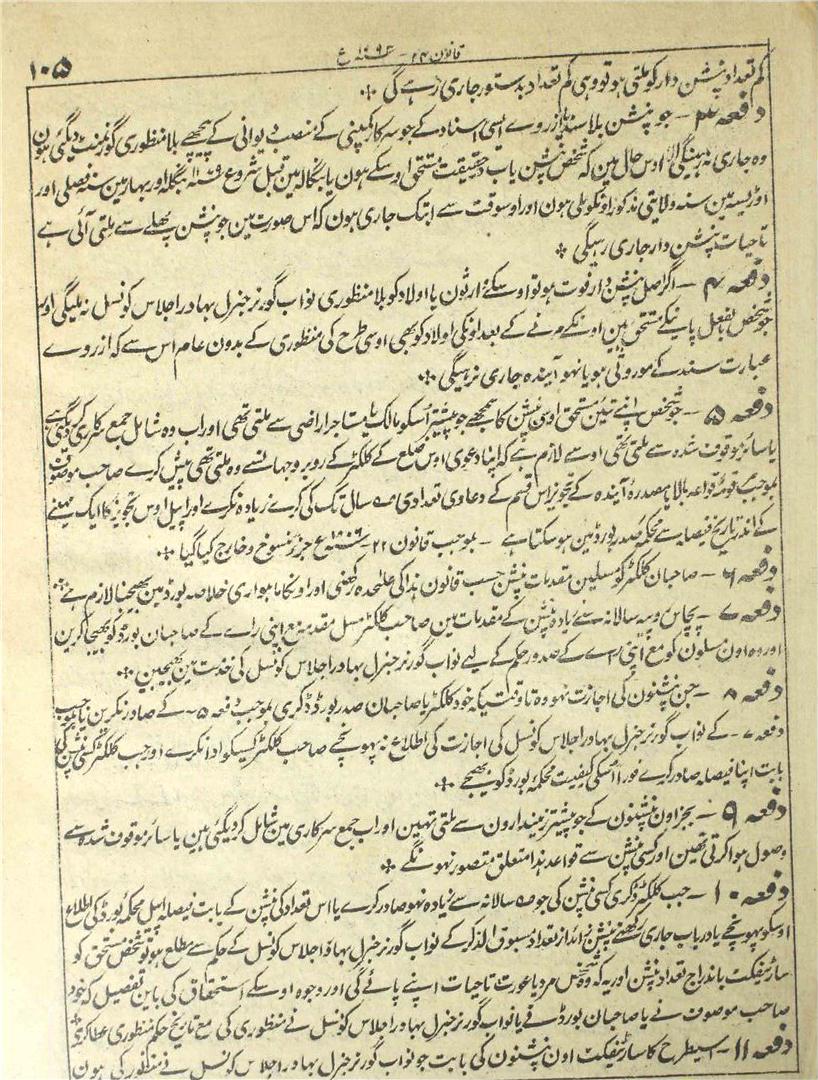 قانون ۲۴ - ۱۷۹۳ ع
۱۰۵
کم تعداد پنشن دار کو ملتی ہو تو وہی کم تعداد بدستور جاری رہے گی
دفعہ ۳ - جو پنشن بلا سند یا ازروے ایسی اسناد کے جو سرکار کمپنی کے منصب دیوانی کے پیچھے بلا منظوری گورنمنٹ دیگئی ہون
وہ جاری نہ رہینگی الا اوس حال مین کہ شخص پنشن یاب درحقیقت مستحق اوسکے ہون یا بنگالہ مین قبل شروع بنگلہ اور بہار مین سنہ فصلی اور
اوڑیسہ مین سنہ ولایتی مذکور اونکو ملی ہون اور اوسوقت سے ابتک جاری ہون کہ اس صورت مین جو پنشن پہلے سے ملتی آئی ہے
تاحیات پنشن دار جاری رہیگی
دفعہ ۴ - اگر اصل پنشن دار فوت ہو تو اوسکے وارثون یا اولاد کو بلا منظوری نواب گورنر جنرل بہادر اجلاس کونسل نہ ملیگی اور
جو شخص بالفعل پانیکے مستحق ہین اونکے مرنے کے بعد اونکی اولاد کو بھی اوسی طرح کی منظوری کے بدون عام اس سے کہ ازروے
عبارت سند کے موروثی ہو یا نہو آیندہ جاری نرہیگی
دفعہ ۵ - جو شخص اپنے تئین مستحق اوس پنشن کا سمجھے جو پیشتر اُسکو مالک یا مستاجر اراضی سے ملتی تھی اور اب وہ شامل جمع سرکاری کر دیگئی ہے
یا سائر موقوف شدہ سے ملتی تھی اوسے لازم ہے کہ اپنا دعوی اوس ضلع کے کلکٹر کے روبرو جہانسے وہ ملتی تھی پیش کرے صاحب موصوف
بموجب قواعد بالا یا مصدرہ آیندہ کے تجویز اس قسم کے دعاوی تعدادی سال تک کی کرے زیادہ نکرے اور اپیل اوس تجویز کا ایک مہینے
کے اندر تاریخ فیصلہ سے محکمہ صدر بورڈ مین ہو سکتا ہے - بموجب قانون ۲۲ - ۱۸۰۶ ع جزء منسوخ و خارج کیا گیا
دفعہ ۶ - صاحبان کلکٹر کو مسلین مقدمات پنشن حسب قانون ہذا کی علٰحدہ رکھنی اور اونکا ماہواری خلاصہ بورڈ مین بھیجنا لازم ہے
دفعہ ۷ - پچاس روپیہ سالانہ سے زیادہ پنشن کے مقدمات مین صاحب کلکٹر مسل مقدمہ مع اپنی راے کے صاحبان بورڈ کو بھیجا کرین
اور وہ اون مسلون کو مع اپنی راے کے صدور حکم کے لیے نواب گورنر جنرل بہادر اجلاس کونسل کی خدمت مین بھیجین
دفعہ ۸ - جن پنشنون کی اجازت نہو وہ تاوقتیکہ خود کلکٹر یا صاحبان صدر بورڈ ڈگری بموجب دفعہ ۵ - کے صادر نکرین یا بموجب
دفعہ ۷ - کے نواب گورنر جنرل بہادر اجلاس کونسل کی اجازت کی اطلاع نہ پہونچے صاحب کلکٹر کسیکو ادا نکرے اور جب کلکٹر کسی پنشن کی
بابت اپنا فیصلہ صادر کرے فوراً اُسکی کیفیت محکمہ بورڈ کو بھیجے
دفعہ ۹ - بجز اون پنشنون کے جو پیشتر زمیندارون سے ملتی تہین اور اب جمع سرکاری مین شامل کر دیگئی ہین یا سائر موقوف شدہ سے
وصول ہوا کرتی تھین اور کسی پنشن سے قواعد ہذا متعلق متصور نہونگے
دفعہ ۱۰ - جب کلکٹر ڈگری کسی پنشن کی جو سالانہ سے زیادہ نہو صادر کرے یا اس تعداد کی پنشن کے بابت فیصلہ اپیل محکمہ بورڈ کی اطلاع
اوسکو پہونچے یا درباب جاری رکھنے پنشن زائد از تعداد مسبوق الذکر کے نواب گورنر جنرل بہادر اجلاس کونسل کے حکم سے مطلع ہو تو شخص مستحق کو
سارٹیفکٹ باندراج تعداد پنشن اور یہ کہ وہ شخص مرد یا عورت تاحیات اپنے پائے گی اور وجوہ اوسکے استحقاق کی باین تفصیل کہ خود
صاحب موصوف نے یا صاحبان بورڈ نے یا نواب گورنر جنرل بہادر اجلاس کونسل نے منظوری کی مع تاریخ حکم منظوری عطا کرے
دفعہ ۱۱ - اسیطرح کا سارٹیفکٹ اون پنشنون کی بابت جو نواب گورنر جنرل بہادر اجلاس کونسل نے منظور کی ہون